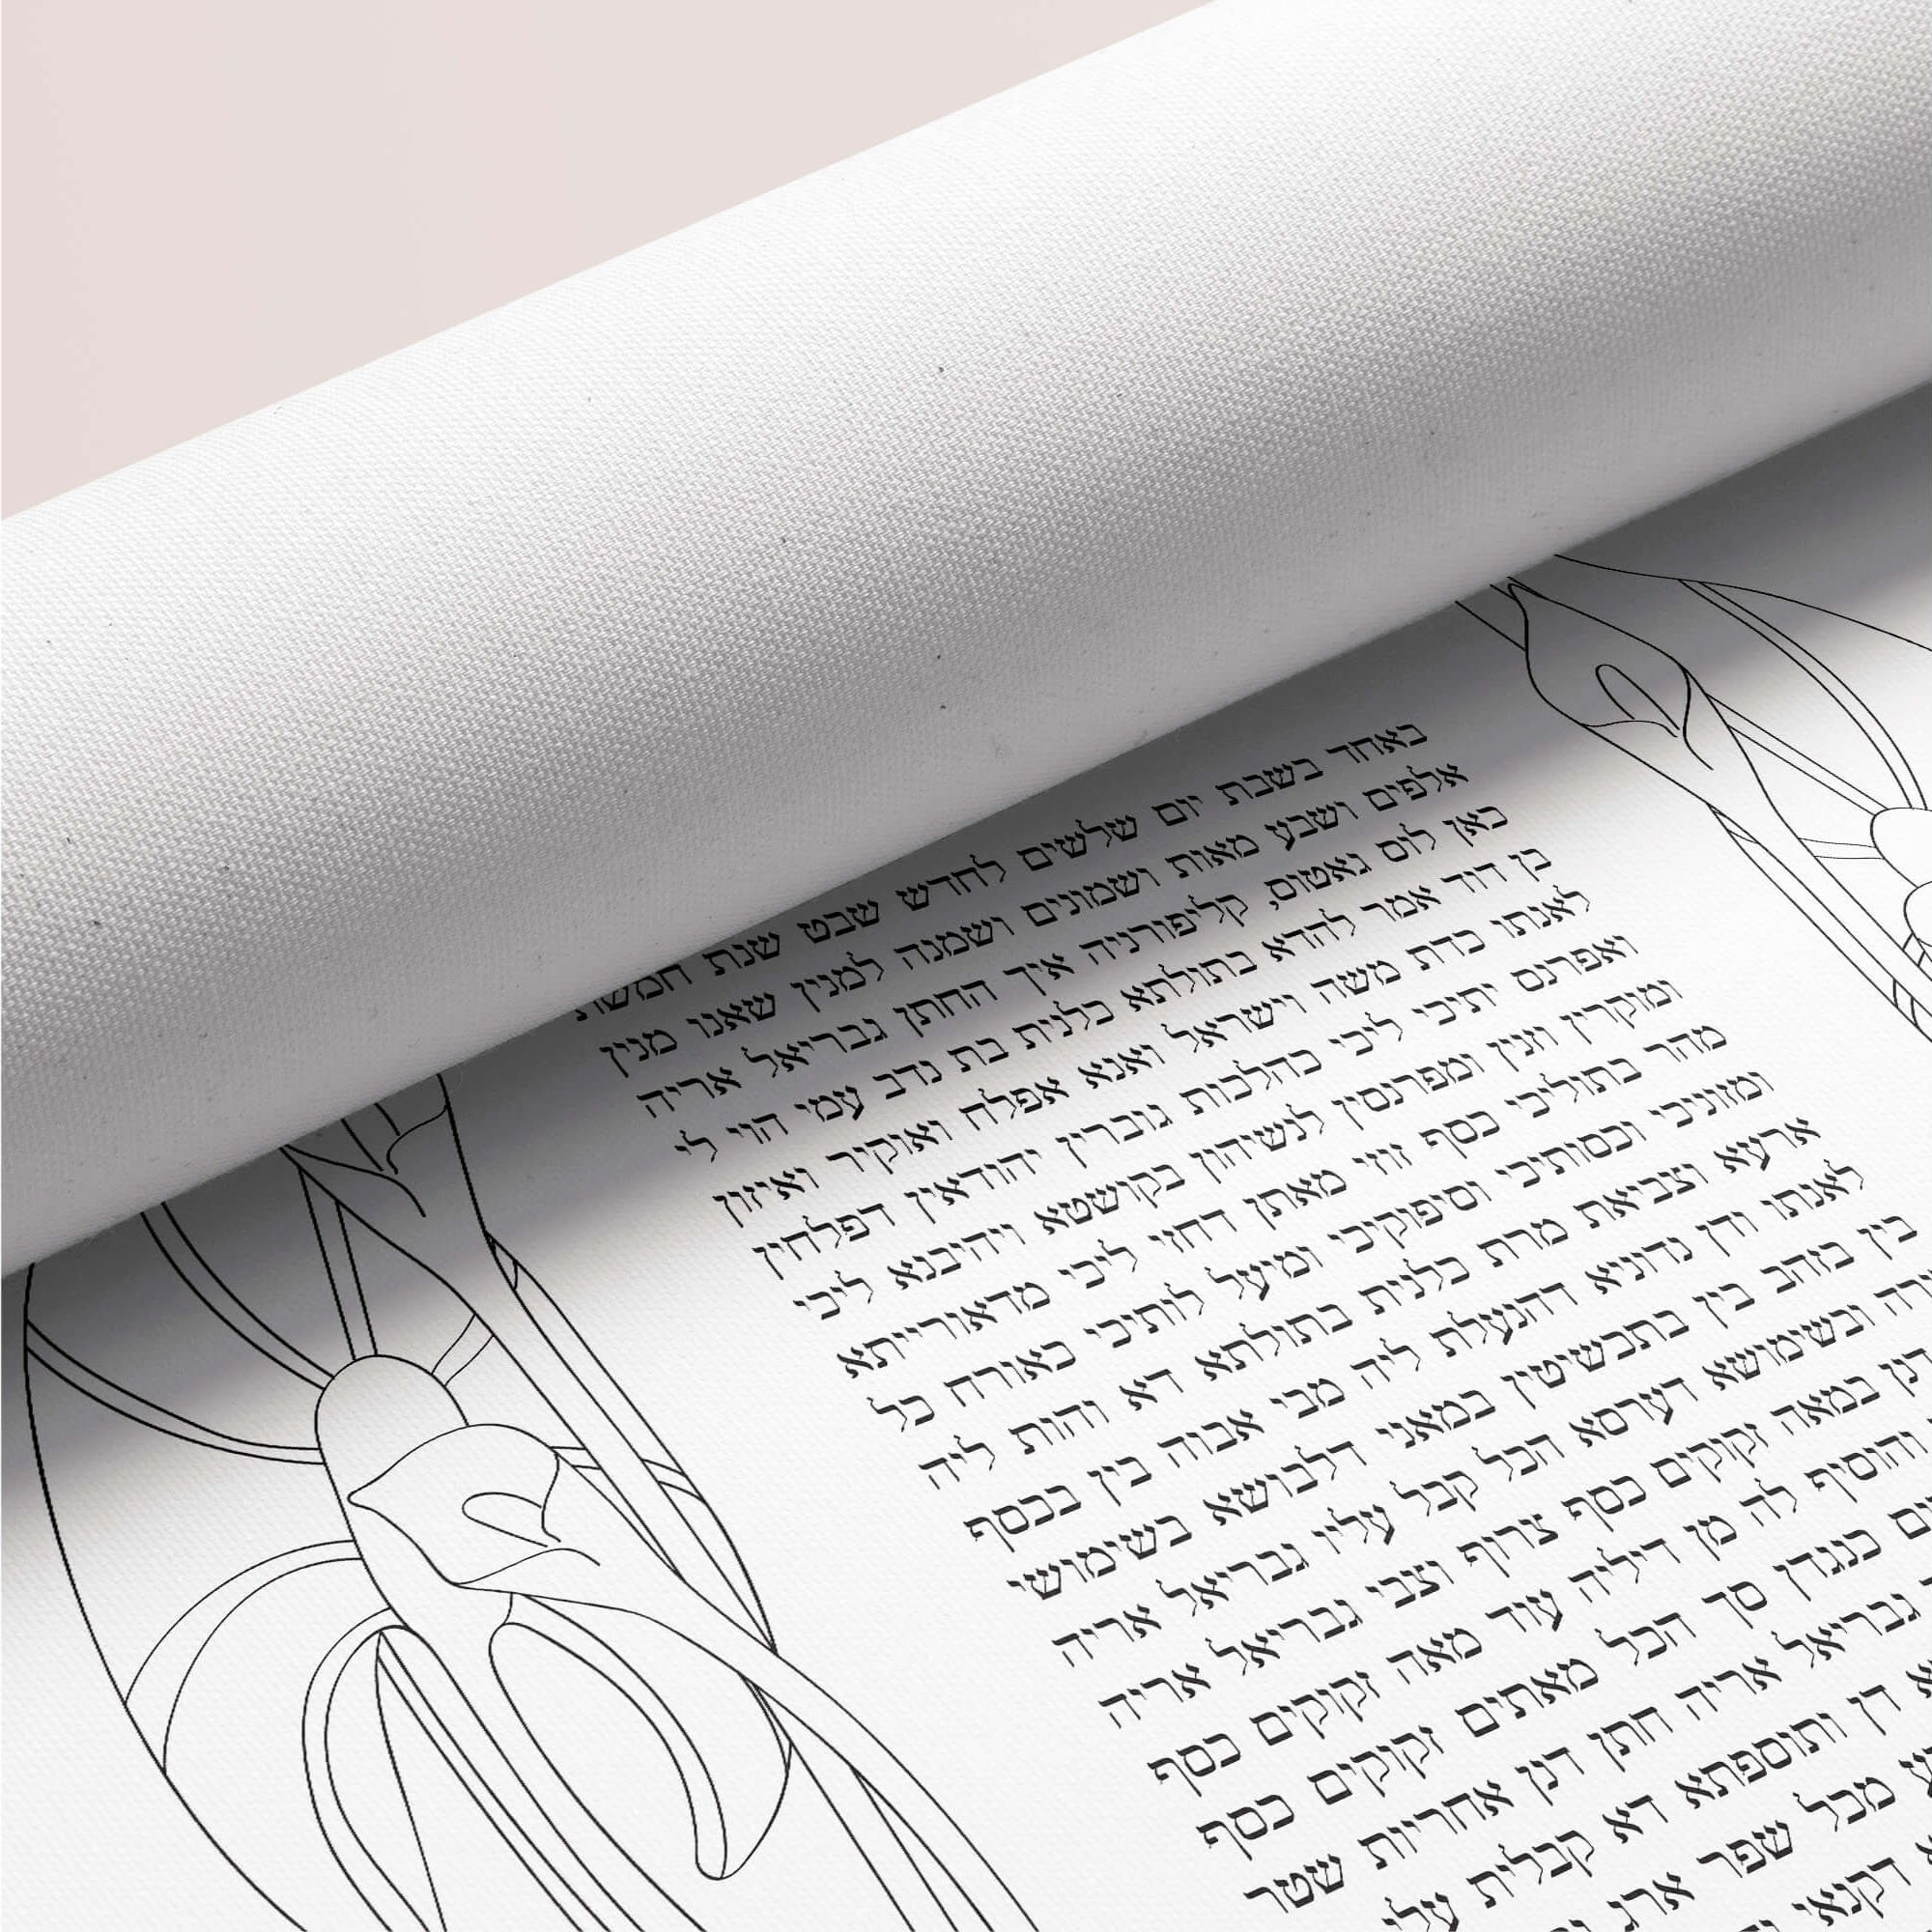 באחד בשבת יום שלשים לחדש שבט שנת חמשת
אלפים ושבע מאות ושמונים ושמנה למנין שאנו מנין
כאן לוס גאטוס, קליפורניה איך החתן גבריאל אריה
בן דוד אמר להדא בתולתא כלנית בת נדב עמי הוי לי
לאנתו כדת משה וישראל ואנא אפלח ואוקיר ואיזון
ואפרנס יתיכי ליכי כהלכות גוברין יהודאין דפלחין
ומוקרין וזנין ומפרנסין לנשיהון בקושטא ויהיבנא ליכי
מהר בתוליכי כסף זוזי מאתן דחזי ליכי מדאורייתא
ומזוניכי וכסותיכי וסיפוקיכי ומיעל לותיכי כאורח כל
ארעא וצביאת מרת כלנית בתולתא דא והות ליה
לאנתו ודן נדוניא דהנעלת ליה מבי אבוה בין בכסף
בין בזהב בין בתכשיטין במאני דלבושא בשימושי
ובשימושא דערסא הכל קבל עליו גבריאל אריה
במאה זקוקים כסף צרוף וצבי גבריאל אריה
והוסיף לה מן דיליה עוד מאה זקוקים כסף
כנגדן סך הכל מאתים זקוקים כסף
גבריאל אריה חתן דנן אחריות שטר
דן ותוספתא דא קבלית עלי
מכל שפר ארג
דקנאי